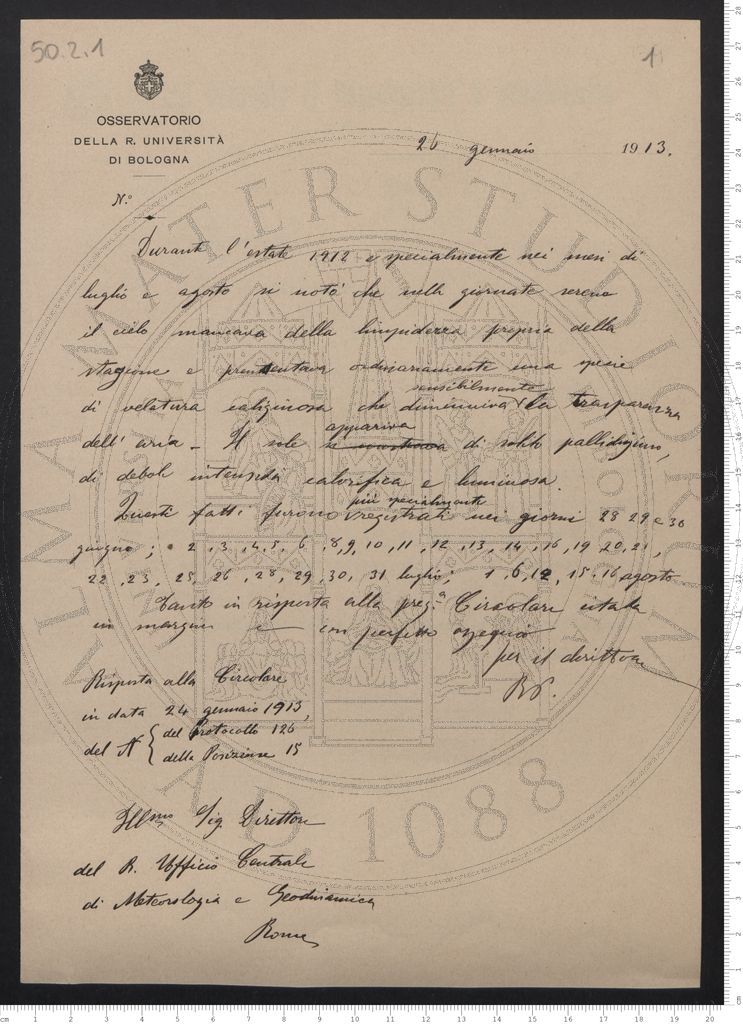 50.2.1
1
OSSERVATORIO
DELLA R. UNIVERSITÀ
DI BOLOGNA
26 gennaio 1913.
N.°
Durante l'estate 1912 e specialmente nei mesi di
luglio e agosto si notò che nelle giornate serene
il cielo mancava della limpidezza propria della
stagione e presentava ordinariamente una specie
sensibilmente
di velatura caliginosa che diminuiva la trasparenza
appariva
dell'aria - Il sole si mostrava di solito pallidissimo,
di debole intensità calorifica e luminosa.
più specialmente
Questi fatti furono registrati nei giorni 28 29 e 30
giugno; 2, 3, 4, 5, 6, 8, 9, 10, 11, 12, 13, 14, 16, 19, 20, 21,
22, 23, 25, 26, 28, 29, 30, 31 luglio; 1, 6, 12, 15, 16 agosto
Tanto in risposta alla preg.a Circolare citata
in margine e con perfetto ossequio
per il direttore
Risposta alla Circolare
in data 24 gennaio 1913,
del N { del Protocollo 126
della Posizione 15
Ill.mo Sig. Direttore
del R. Ufficio Centrale
di Meteorologia e Geodinamica
Roma
ALMA MATER STUDIORUM
A.D. 1088